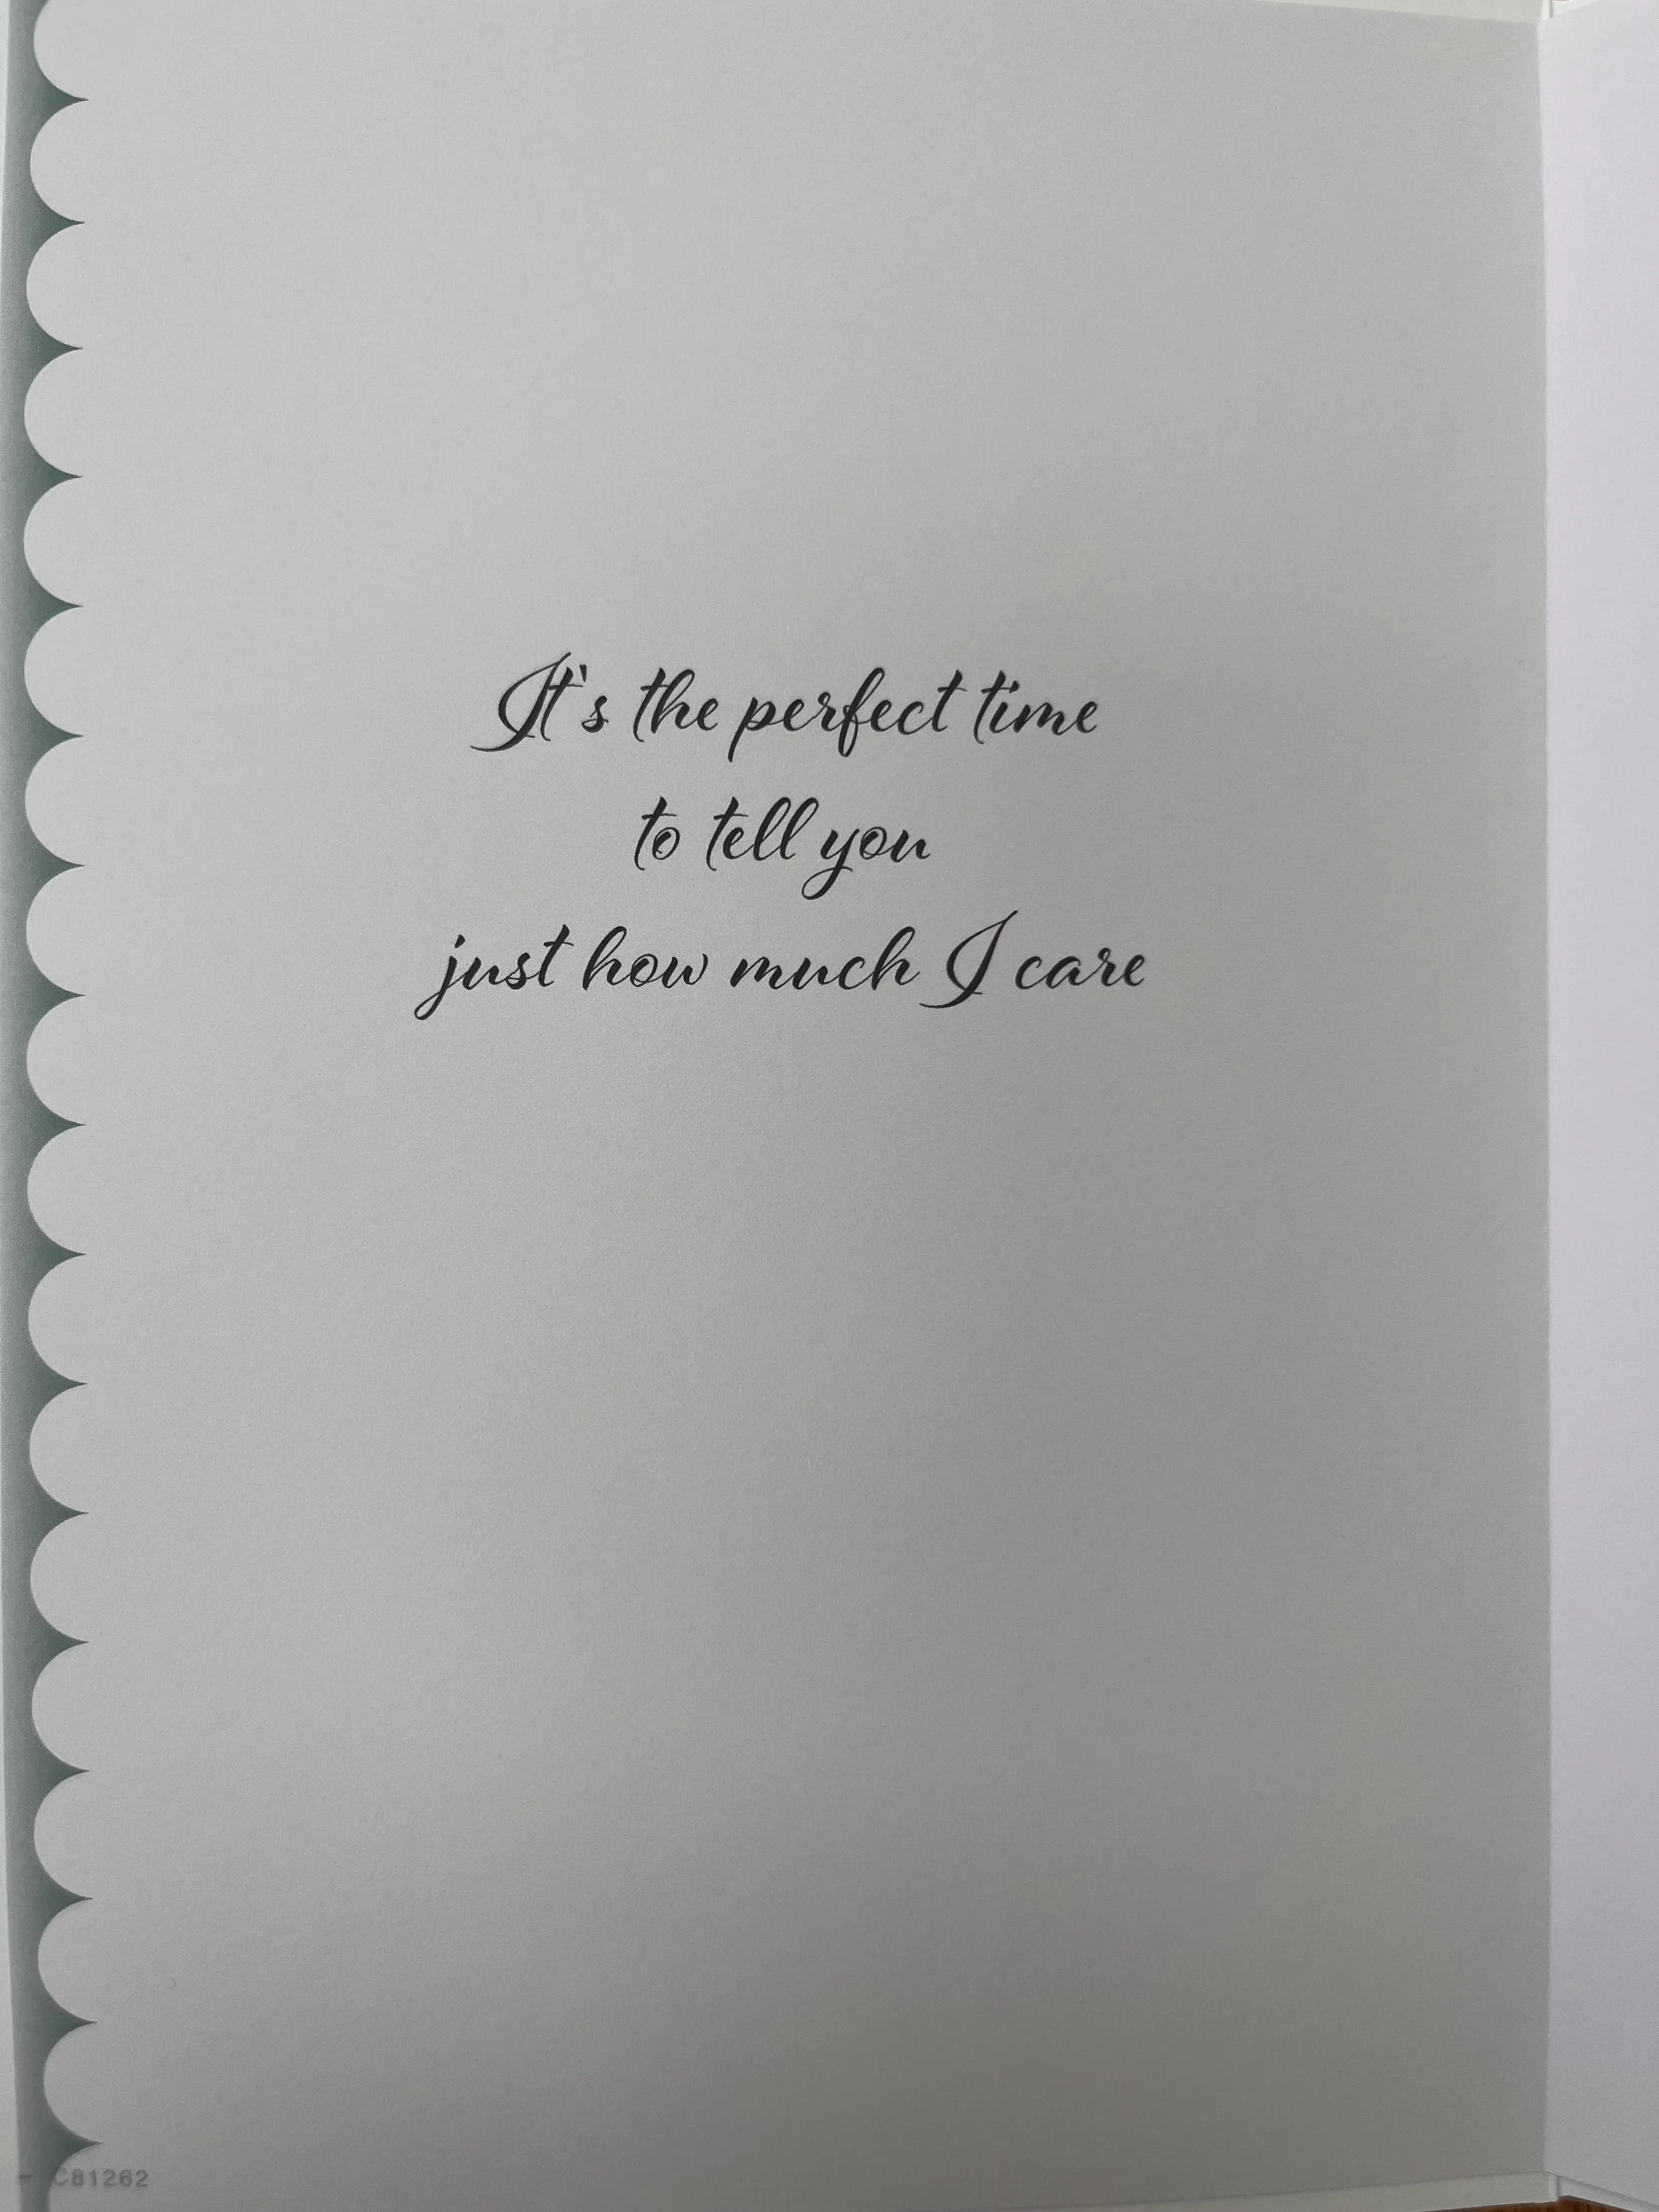 It's the perfect time
to tell you
just how much I care
C81262